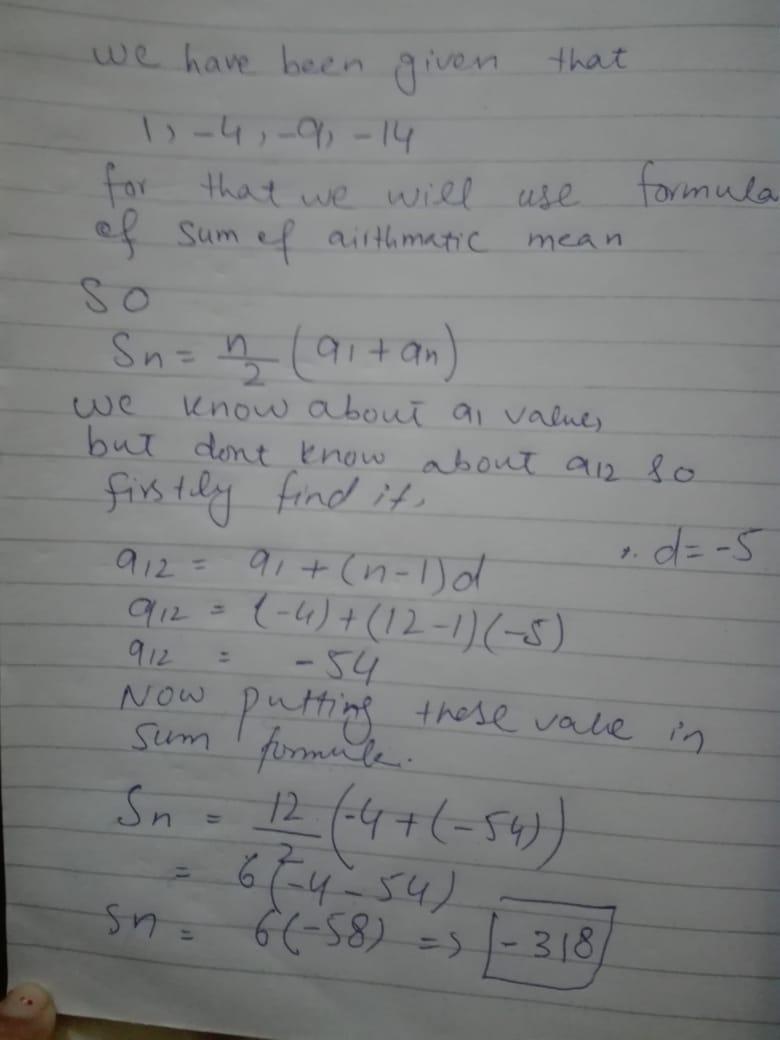 we have been given that
1, -4, -9, -14
for that we will use formula
of sum of airthmatic mean
SO
Sn = n/2 (a1 + an)
we know about a1 value,
but dont know about a12 so
firstly find it.
a12 = a1 + (n-1)d ∴ d = -5
a12 = (-4) + (12-1)(-5)
a12 = -54
NOW putting these value in
sum formula.
Sn = 12/2 (-4 + (-54))
= 6(-4 - 54)
Sn = 6(-58) => -318